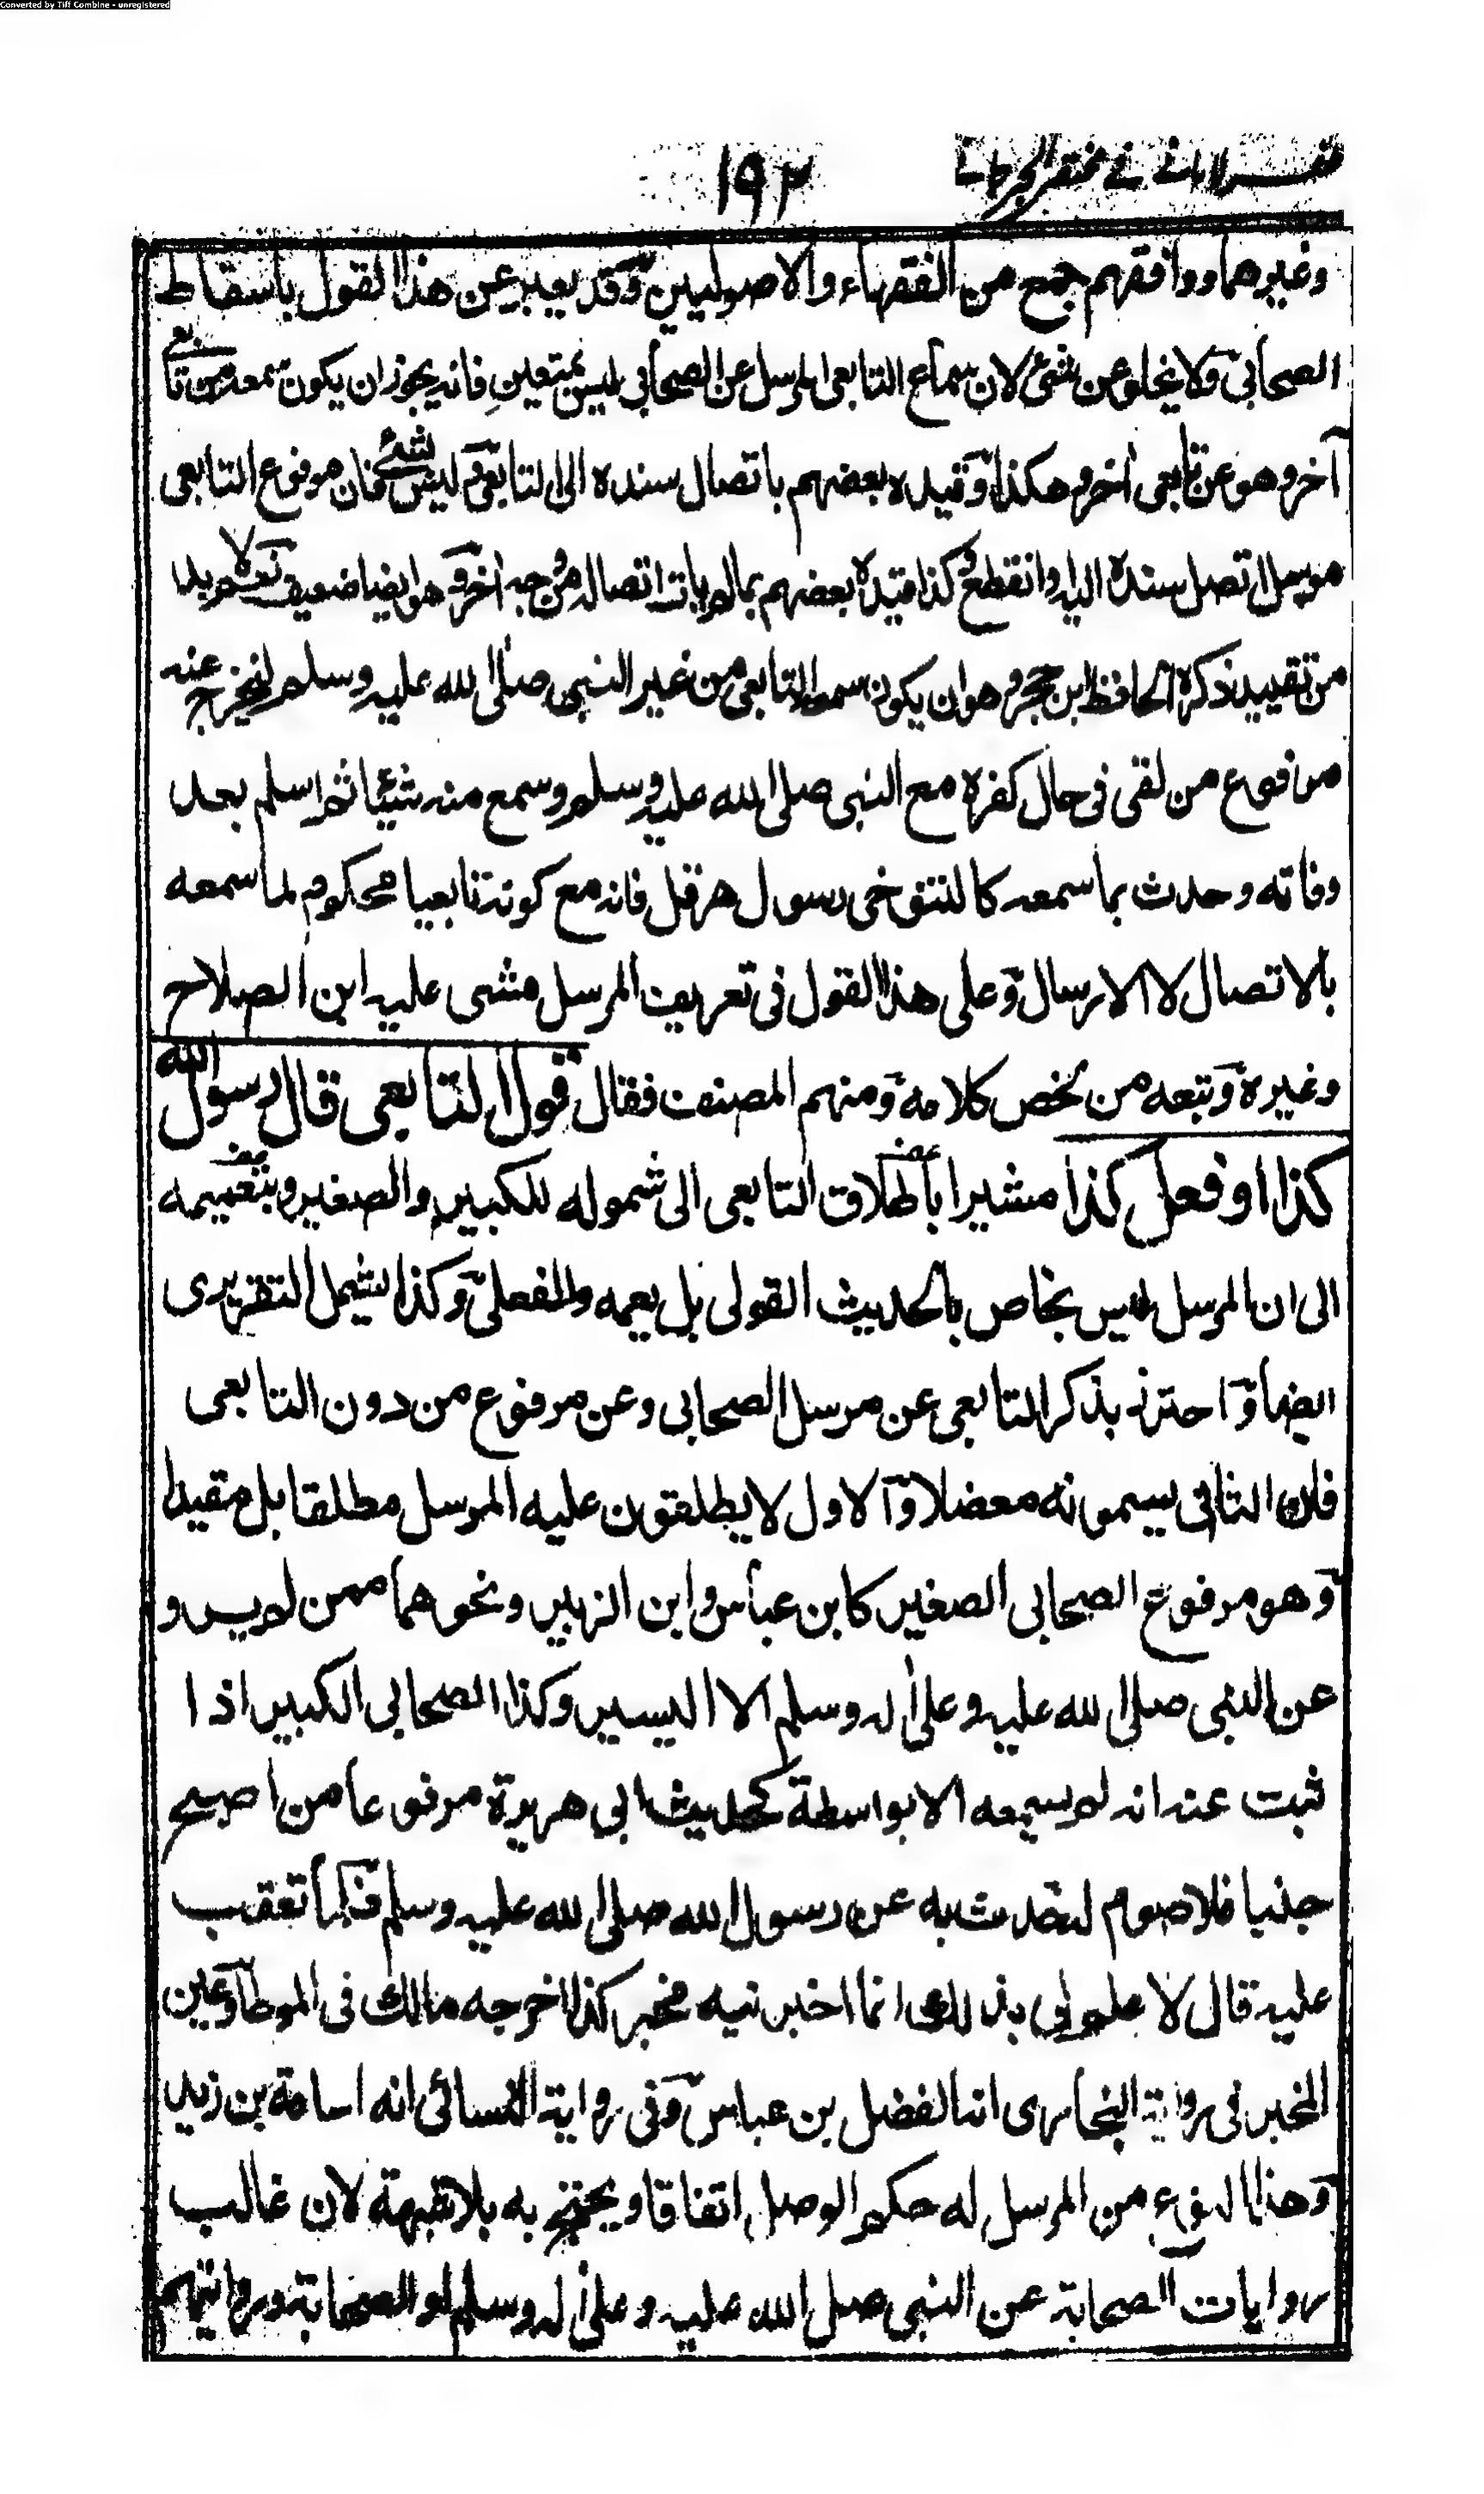 Converted by Tiff Combine - unregistered
ظفر الاماني في مختصر الجرجاني
١٩٢
وغيرهما ووافقهم جمع من الفقهاء والاصوليين وقد يعبر عن هذا القول باسقاط
الصحابى ولا يخلو عن شئ لان سماع التابعى المرسل عن الصحابى ليس بمتعين فانه يجوز ان يكون سمعه من تابعى
آخر وهو عن تابعى اخر وهكذا وقيده بعضهم باتصال سنده الى التابعى وليس بشئ فان مرفوع التابعى
مرسل اتصل سنده اليه او انقطع وكذا قيده بعضهم بما لم يات اتصاله من وجه اخر وهو ايضا ضعيف نعم لا بد
من تقييد ذكره الحافظ ابن حجر وهو ان يكون سمعه التابعى من غير النبى صلى الله عليه وسلم ليخرج عنه
مرفوع من لقى فى حال كفره مع النبى صلى الله عليه وسلم وسمع منه شيئا ثم اسلم بعد
وفاته وحدث بما سمعه كالتنوخى رسول هرقل فانه مع كونه تابعيا محكوم لما سمعه
بالاتصال لا الارسال وعلى هذا القول فى تعريف المرسل مشى عليه ابن الصلاح
وغيره وتبعه من لخص كلامه ومنهم المصنف فقال قول التابعى قال رسول الله
كذا او فعل كذا مشيرا باطلاق التابعى الى شموله للكبير والصغير وبتعميمه
الى ان المرسل ليس بخاص بالحديث القولى بل يعمه والفعلى وكذا يشمل التقريرى
ايضا واحترز بذكر التابعى عن مرسل الصحابى وعن مرفوع من دون التابعى
فان الثانى يسمونه معضلا والاول لا يطلقون عليه المرسل مطلقا بل مقيدا
وهو مرفوع الصحابى الصغير كابن عباس وابن الزبير ونحوهما ممن لم يرو
عن النبى صلى الله عليه وعلى اله وسلم الا اليسير وكذا الصحابى الكبير اذا
ثبت عنه انه لم يسمعه الا بواسطة كحديث ابى هريرة مرفوعا من اصبح
جنبا فلا صوم له تحدث به عن رسول الله صلى الله عليه وسلم فلما تعقب
عليه قال لا علم لى بذلك انما اخبرنيه مخبر كذا اخرجه مالك فى الموطا وعين
المخبر فى رواية البخارى انه الفضل بن عباس وفى رواية النسائى انه اسامة بن زيد
وهذا النوع من المرسل له حكم الوصل اتفاقا ويحتج به بلا شبهة لان غالب
روايات الصحابة عن النبى صلى الله عليه وعلى اله وسلم او الصحابة وروايتهم